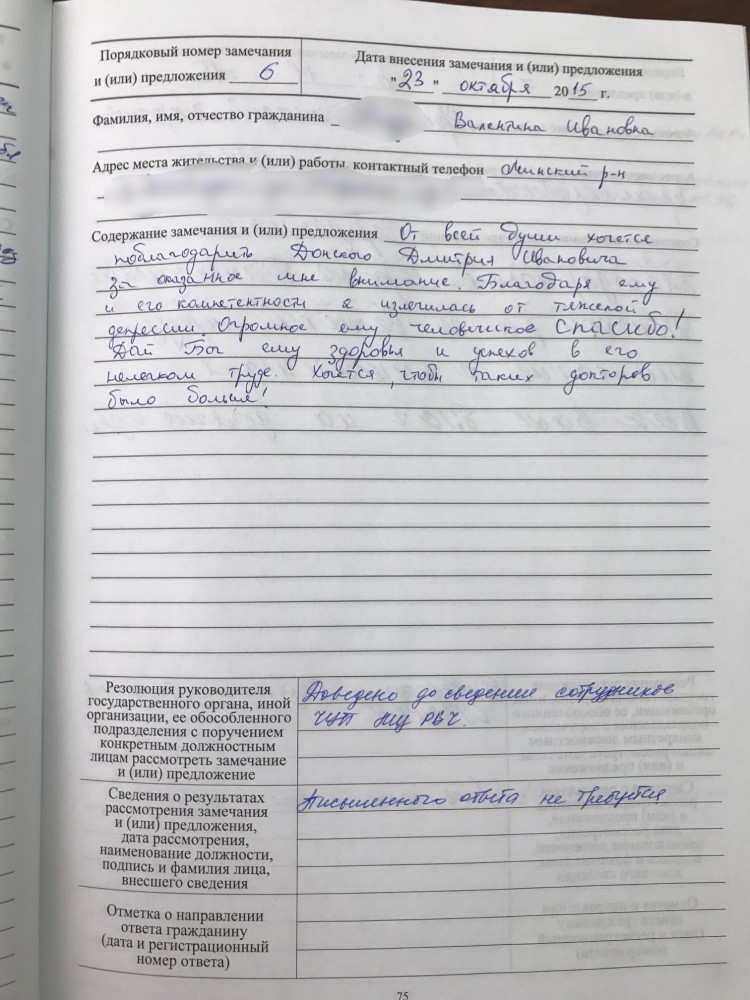 Порядковый номер замечания
и (или) предложения 6
Дата внесения замечания и (или) предложения
"23" октября 2015 г.
Фамилия, имя, отчество гражданина Валентина Ивановна
Адрес места жительства и (или) работы, контактный телефон Минский р-н
Содержание замечания и (или) предложения От всей души хочется
поблагодарить Донского Дмитрия Ивановича
за оказанное мне внимание. Благодаря ему
и его компетентности я излечилась от тяжелой
депрессии. Огромное ему человеческое Спасибо!
Дай Бог ему здоровья и успехов в его
нелегком труде. Хочется, чтобы таких докторов
было больше!
Резолюция руководителя
государственного органа, иной
организации, ее обособленного
подразделения с поручением
конкретным должностным
лицам рассмотреть замечание
и (или) предложение
Доведено до сведения сотрудников
Сведения о результатах
рассмотрения замечания
и (или) предложения,
дата рассмотрения,
наименование должности,
подпись и фамилия лица,
внесшего сведения
Письменного ответа не требуется
Отметка о направлении
ответа гражданину
(дата и регистрационный
номер ответа)
75